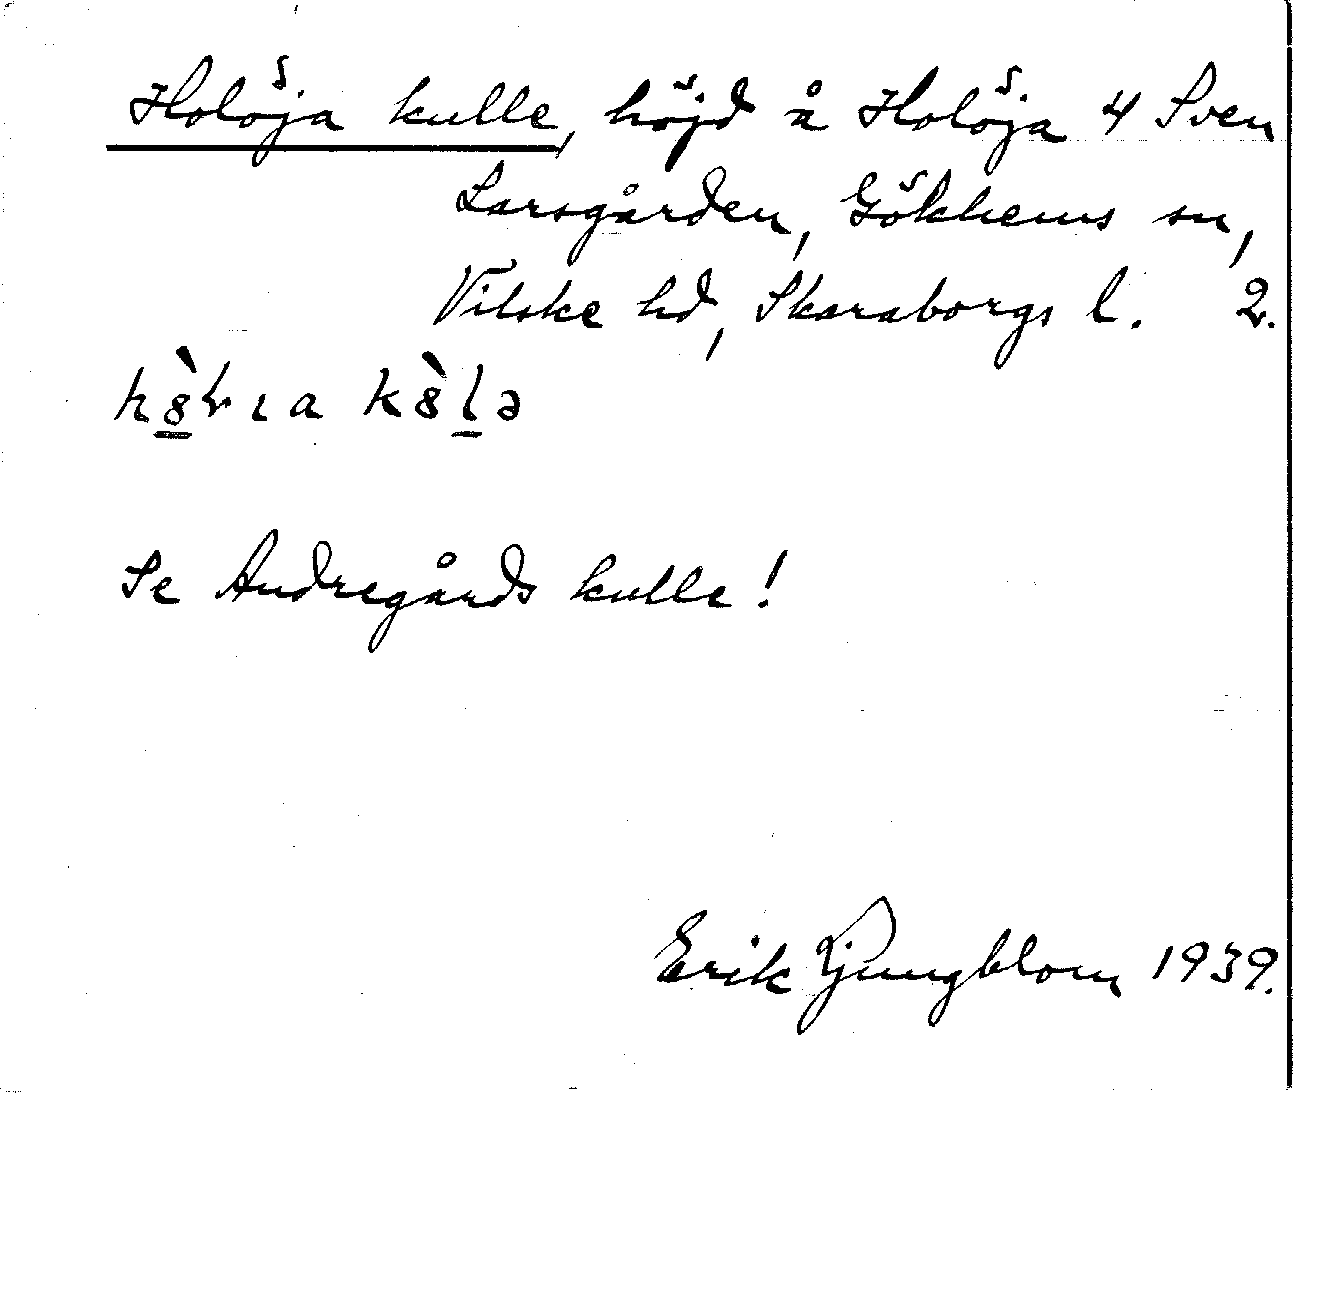 Holöja kulle, höjd å Holöja 4 Sven
Larsgården, Gökhems sn,
Vilske hd, Skaraborgs l. 2.
Se Andregårds kulle!
Erik Ljungblom 1939.